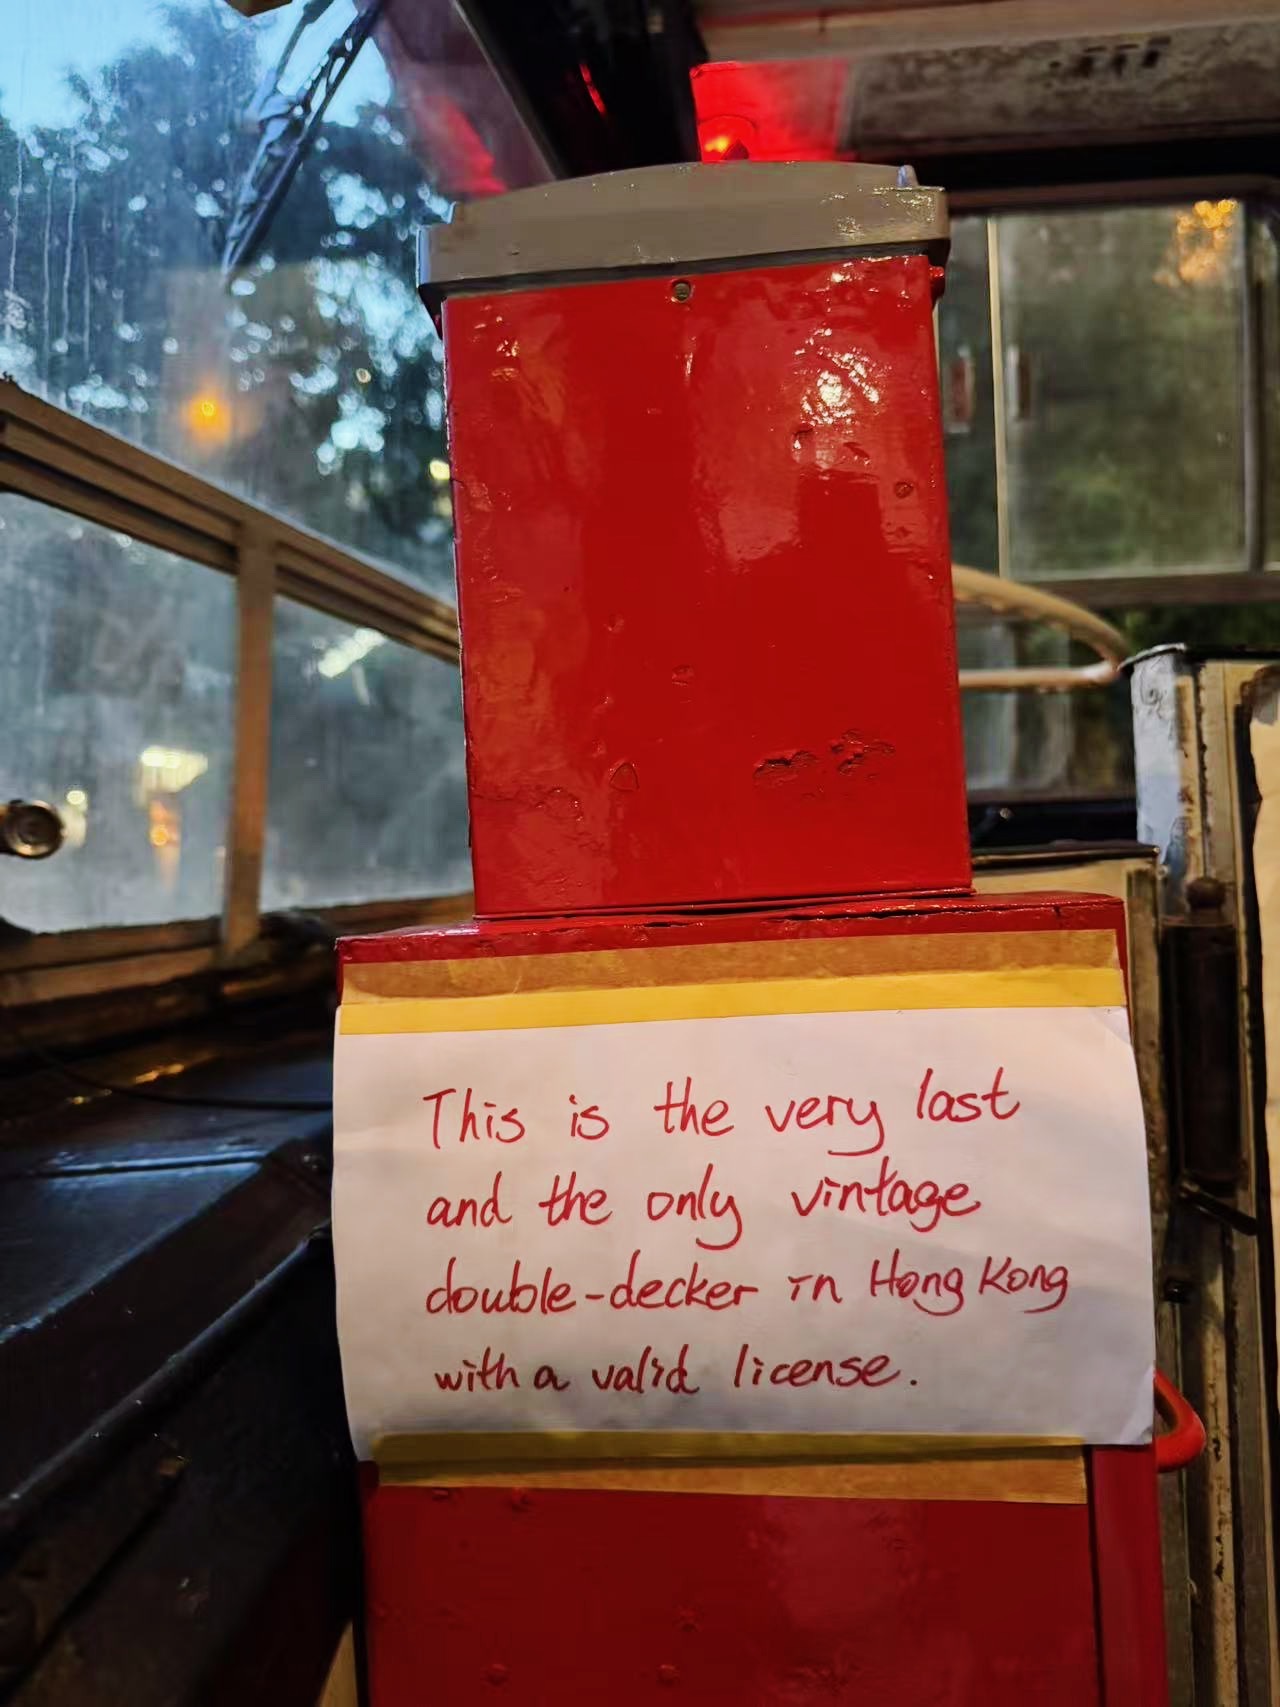 This is the very last
and the only vintage
double-decker in Hong Kong
with a valid license.